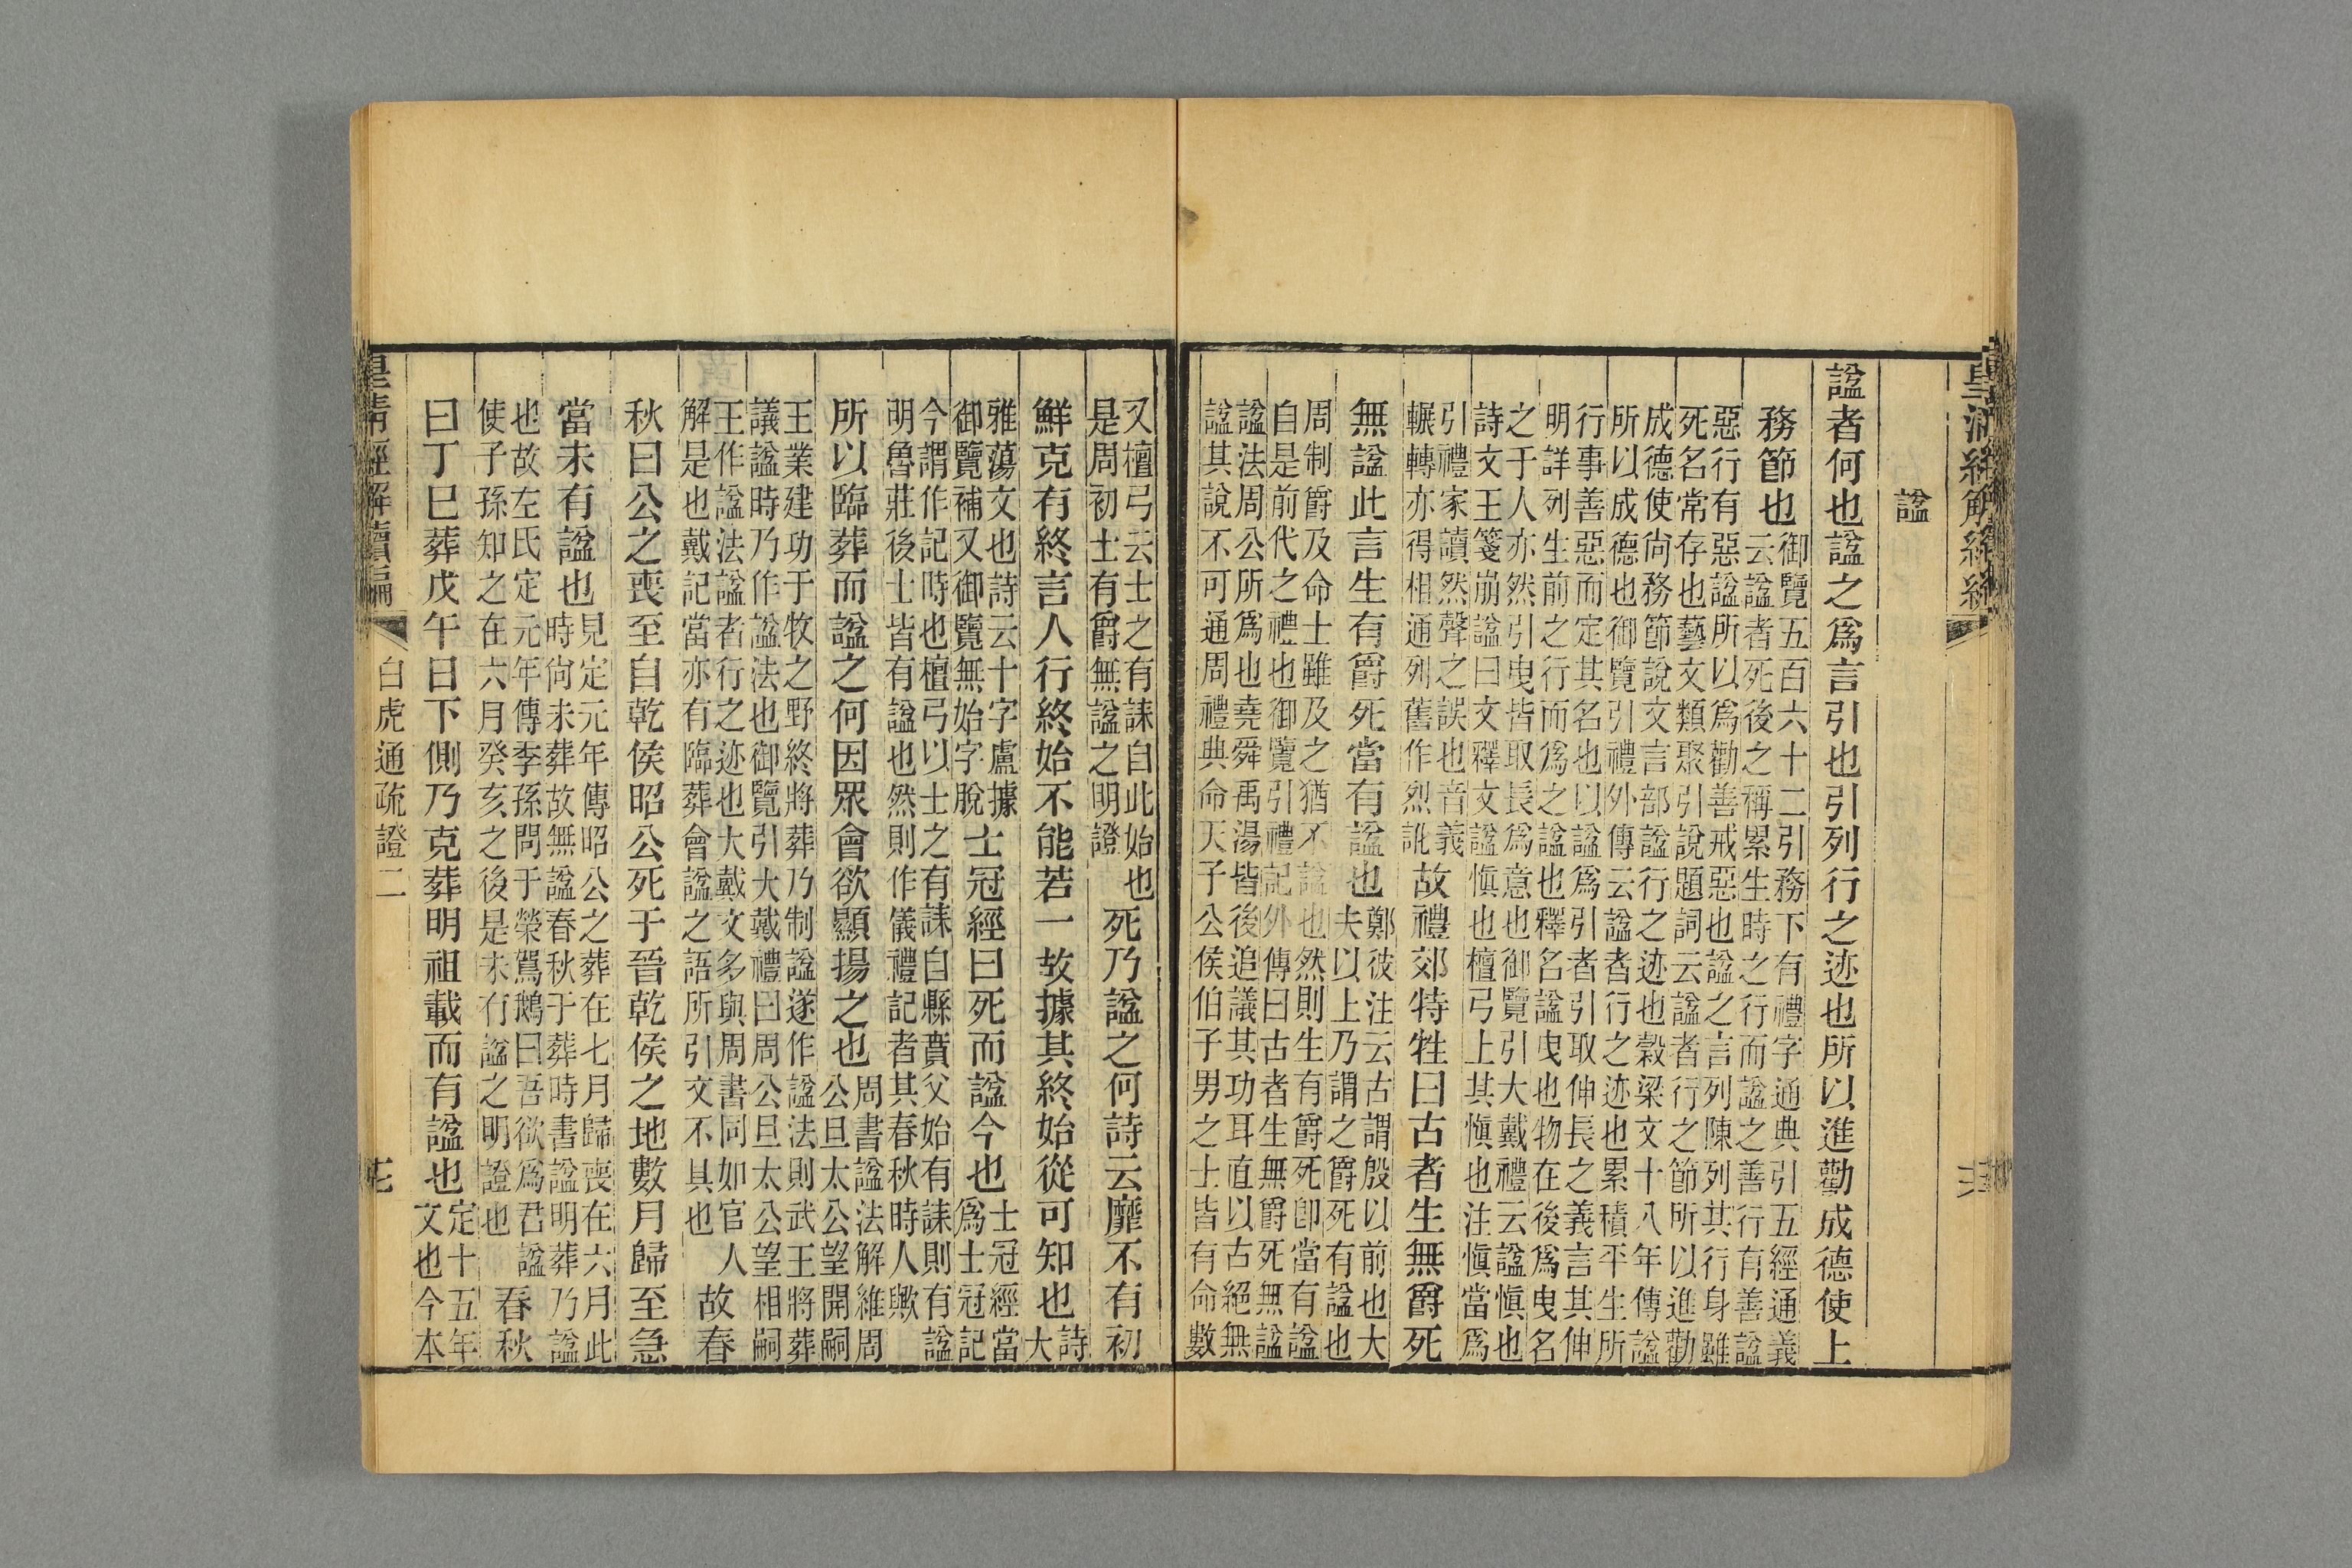 諡
諡者何也諡之爲言引也引列行之迹也所以進勸成德使上
務節也
御覽五百六十二引務下有禮字通典引五經通義
云諡者死後之稱累生時之行而諡之善行有善諡
惡行有惡諡所以爲勸善戒惡也諡之言列陳列其行身雖
死名常存也藝文類聚引說題詞云諡者行之節所以進勸
成德使尙務節說文言部諡行之迹也穀梁文十八年傳諡
所以成德也御覽引禮外傳云諡者行之迹也累積平生所
行事善惡而定其名也以諡爲引者引取伸長之義言其伸
明詳列生前之行而爲之諡也釋名諡曳也物在後爲曳名
之于人亦然引曳皆取長爲意也御覽引大戴禮云諡愼也
詩文王箋崩諡曰文釋文諡愼也檀弓上其愼也注愼當爲
引禮家讀然聲之誤也音義
輾轉亦得相通列舊作烈訛
故禮郊特牲曰古者生無爵死
無諡此言生有爵死當有諡也
鄭彼注云古謂殷以前也大
夫以上乃謂之爵死有諡也
周制爵及命士雖及之猶不諡也然則生有爵死卽當有諡
自是前代之禮也御覽引禮記外傳曰古者生無爵死無諡
諡法周公所爲也堯舜禹湯皆後追議其功耳直以古絕無
諡其說不可通周禮典命天子公侯伯子男之士皆有命數
又檀弓云士之有誄自此始也
是周初士有爵無諡之明證
死乃諡之何詩云靡不有初
鮮克有終言人行終始不能若一故據其終始從可知也
詩
大
雅蕩文也詩云十字盧據
御覽補又御覽無始字脫
士冠經曰死而諡今也
士冠經當
爲士冠記
今謂作記時也檀弓以士之有誄自縣賁父始有誄則有諡
明魯莊後士皆有諡也然則作儀禮記者其春秋時人歟
所以臨葬而諡之何因眾會欲顯揚之也
周書諡法解維周
公旦太公望開嗣
王業建功于牧之野終將葬乃制諡遂作諡法則武王將葬
議諡時乃作諡法也御覽引大戴禮曰周公旦太公望相嗣
王作諡法諡者行之迹也大戴文多與周書同如官人
解是也戴記當亦有臨葬會諡之語所引文不具也
故春
秋曰公之喪至自乾侯昭公死于晉乾侯之地數月歸至急
當未有諡也
見定元年傳昭公之葬在七月歸喪在六月此
時尙未葬故無諡春秋于葬時書諡明葬乃諡
也故左氏定元年傳季孫問于榮駕鵝曰吾欲爲君諡
使子孫知之在六月癸亥之後是未有諡之明證也
春秋
曰丁巳葬戊午日下側乃克葬明祖載而有諡也
定十五年
文也今本
皇清經解續編
白虎通疏證二